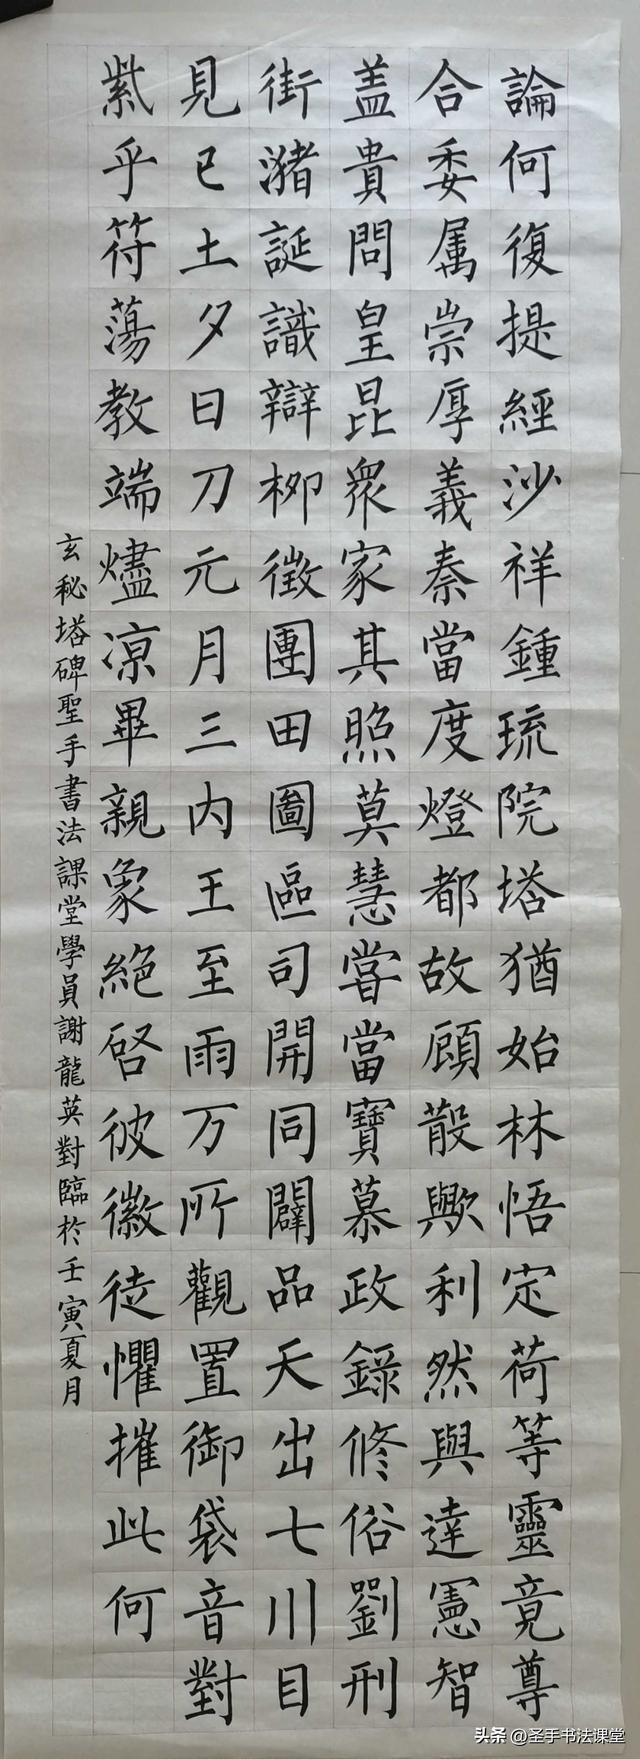 論何復提經沙祥鍾琉院塔猶始林悟定荷等靈竟尊
合委属崇厚義秦當度燈都故頋骰歟利然與達憲智
盖貴問皇昆衆家其照莫慧甞當寶慕政錄修俗劉刑
街瀦誕識辯栁徵團田圖區司開同闢品天出七川目
見已土夕日刀元月三内王至雨万所觀置御袋音對
紫乎符蕩教端燼凉畢親象絶啓彼徽徒懼摧此何
玄秘塔碑聖手書法課堂學員謝龍英對臨於壬寅夏月
头条 @圣手书法课堂